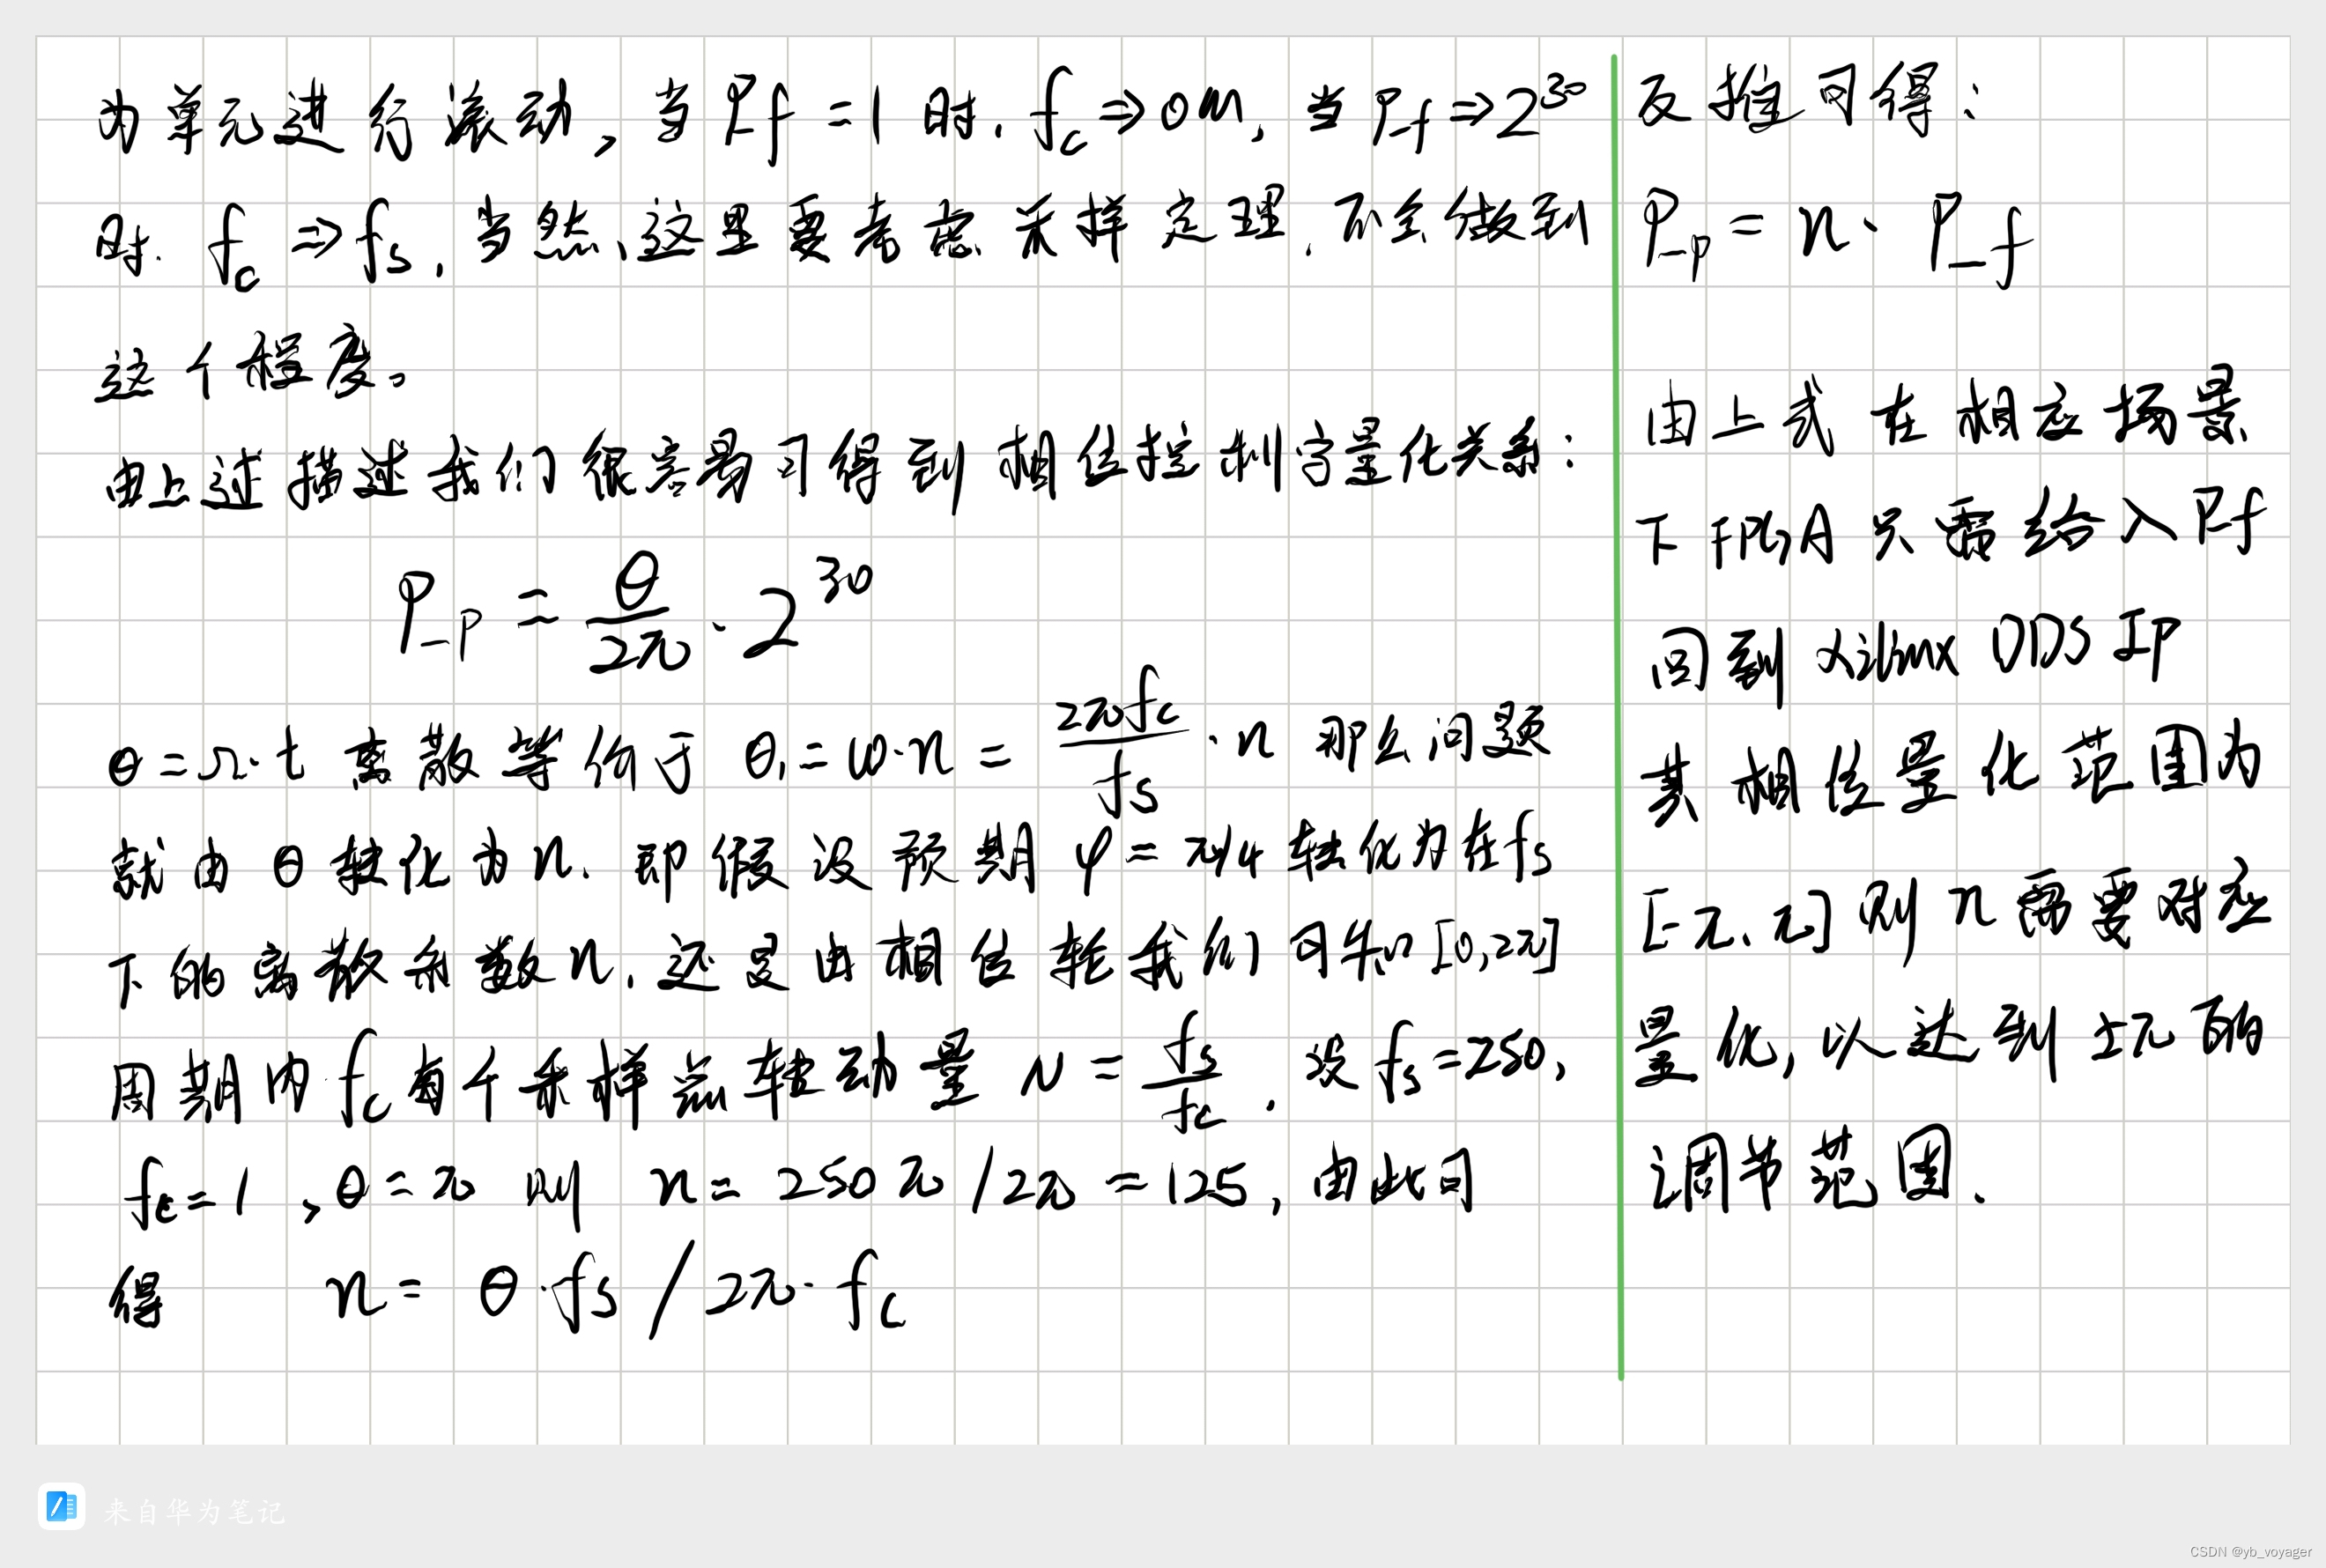 为单元进行滚动,当P_f=1时.f_c⇒0M,当P_f⇒2^30
时.f_c⇒f_s,当然、这里要考虑采样定理.不会做到
这个程度。
由上述描述我们很容易可得到相位控制字量化关系:
P_p = θ/2π · 2^30
θ=Ω·t 离散等价于 θ₁=ω·n = 2πf_c/f_s · n 那么问题
就由θ转化为n.即假设预期φ=π/4转化为在fs
下的离散系数n.还是由相位轮我们可知[0,2π]
周期内f_c每个采样点转动量 N = f_s/f_c . 设f_s=250,
f_c=1 ,θ=π 则 n=250π/2π=125, 由此可
得 n= θ·f_s/2π·f_c
反推可得:
P_p = n· P_f
由上式在相应场景
下FPGA只需给入P_f
回到xilinx DDS IP
其相位量化范围为
[-π、π]则n需要对应
量化,以达到±π的
调节范围.
来自华为笔记
CSDN @yb_voyager